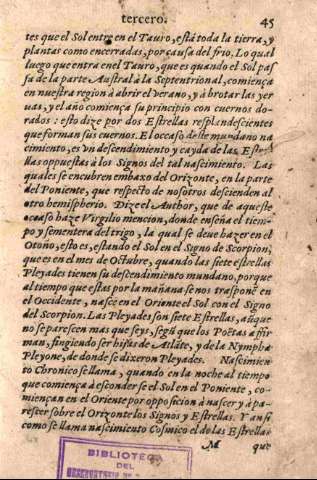 tercero. 45
tes que el Sol entre en el Tauro, está toda la tierra, y
plantas como encerradas, por causa del frio. Lo qual
luego que entra en el Tauro, que es quando el Sol pas
sa de la parte Austral à la Septentrional, comiença
en nuestra region à abrir el verano, y à brotar las yer
uas, y el año comiença su principio con cuernos do-
rados: esto dize por dos Estrellas resplandescientes
que forman sus cuernos. El occaso deste mundano na
cimiento, es vn descendimiento y cayda de las Estre
llas oppuestas à los Signos del tal nascimiento. Las
quales se encubren embaxo del Orizonte, en la parte
del Poniente, que respecto de nosotros descienden al
otro hemispherio. Dize el Author, que de aqueste
occaso haze Virgilio mencion, donde enseña el tiem-
po y sementera del trigo, la qual se deue hazer en el
Otoño, esto es, estando el Sol en el Signo de Scorpion,
que es en el mes de Octubre, quando las siete estrellas
Pleyades tienen su descendimiento mundano, porque
al tiempo que estas por la mañana se nos traspone en
el Occidente, nasce en el Oriente el Sol con el Signo
del Scorpion. Las Pleyades son siete Estrellas, aũque
no se parescen mas que seys, segũ que los Poëtas affir
man, fingiendo ser hijas de Atlãte, y de la Nympha
Pleyone, de donde se dixeron Pleyades. Nascimien
to Chronico se llama, quando en la noche al tiempo
que comiença à esconderse el Sol en el Poniente, co-
miençan en el Oriente por opposicion à nascer y à pa-
rescer sobre el Orizonte los Signos y Estrellas. Y ansi
como se llama nascimiento Cosmico el de las Estrellas
M que
BIBLIOTECA
DEL